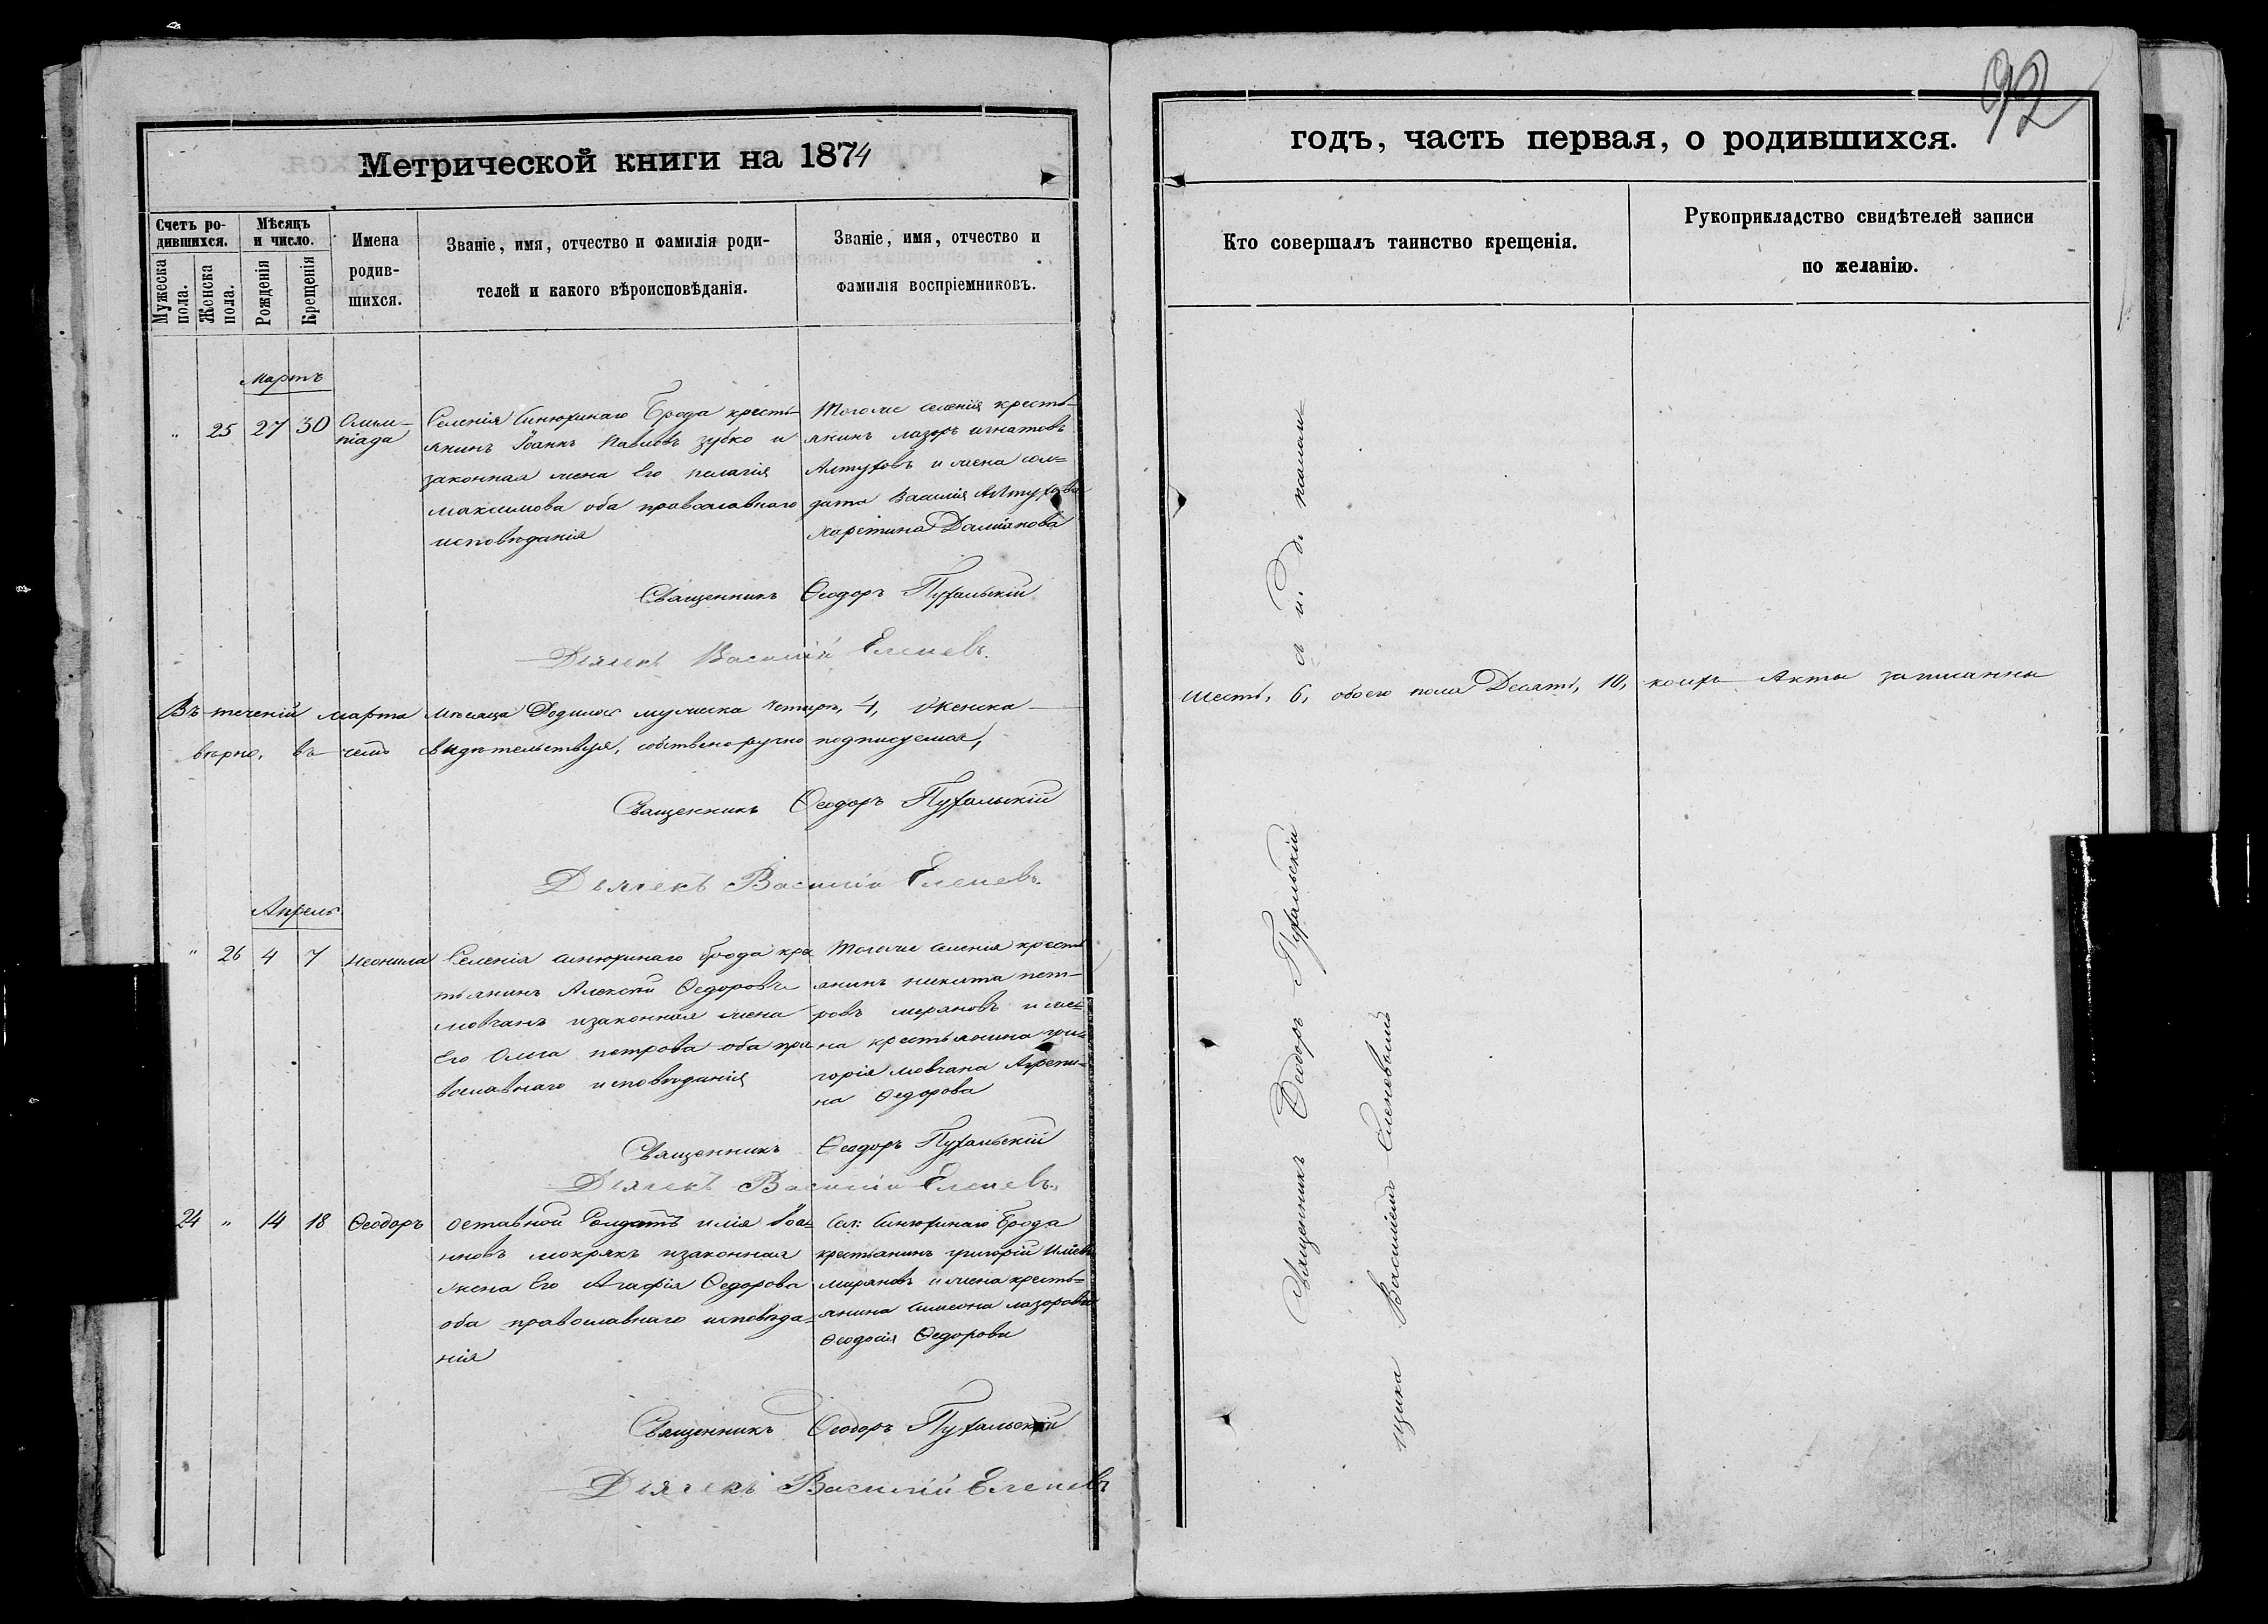 92
Метрической книги на 1874
годъ, часть первая, о родившихся.
Счетъ родившихся.
Мѣсяцъ и число.
Имена родив-
шихся.
Званіе, имя, отчество и фамилія роди-
телей и какого вѣроисповѣданія.
Званіе, имя, отчество и
фамилія воспріемниковъ.
Мужеска пола.
Женска пола.
Рожденія
Крещенія
Кто совершалъ таинство крещенія.
Рукоприкладство свидѣтелей записи
по желанію.
Мартъ
" 25 27 30
Олим-
піада
Селенія Синюхинаго Брода кресть-
янинъ Іоаннъ Павловъ Зубко и
законная жена Его пелагія
максимова оба православнаго
исповѣданія
Тогоже селенія кресть-
янинъ лазорь игнатовъ
Алтуховъ и жена сол-
дата Василія Алтухова
харетина Даміанова
Священникъ Ѳеодоръ Пухальскій
Дьячекъ Василій Еленевъ.
Въ теченіи марта мѣсяца Родилос мужеска четыре, 4, Женска
шесть, 6, обоего пола Десять, 10, коихъ Акты записанны
вѣрно, въ чемъ свидѣтельствуя, собственоручно подписуемся,
Священникъ Ѳеодоръ Пухальскій
Дьячекъ Василій Еленевъ.
Апрель
" 26 4 7
неонила
Селенія Синюхинаго Брода кре
тьянинъ Алексѣй Ѳедоровъ
мовчанъ изаконная жена
Его Олга петрова оба пра-
вославнаго исповѣданія
Тогоже селенія кресть
янинъ никита пет-
ровъ меряновъ и же-
на крестьянина гри-
горія мовчана Агрепи-
на Ѳедорова
Священникъ Ѳеодоръ Пухальскій
Дьячекъ Василій Еленевъ.
24 " 14 18
Ѳеодоръ
Оставной Солдатъ илія Іоа-
нновъ мокрякъ изаконная
Жена Его Агафія Ѳедорова
оба православнаго исповѣда-
нія
Сел: Синюхинаго Брода
крестьянинъ григорій Иліевъ
миряновъ и жена кресть-
янина Симеона лазорова
Ѳеодосія Ѳедорова
Священникъ Ѳеодоръ Пухальскій
Дьячекъ Василій Еленевъ
Священникъ Ѳеодоръ Пухальскій
л и. д. псалом-
щика Василій Еленевскій